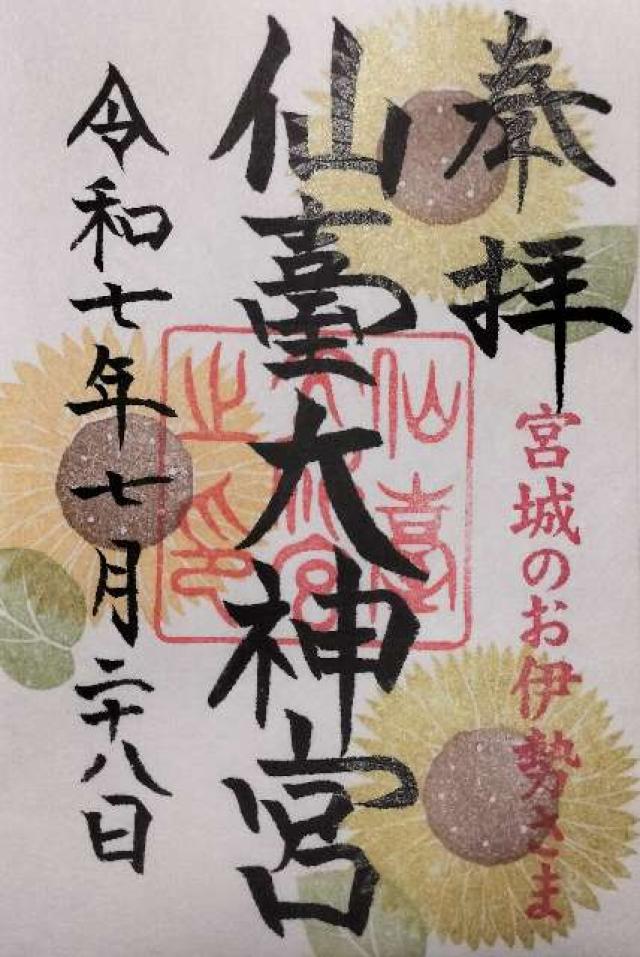 奉拝
宮城のお伊勢さま
仙臺大神宮
仙臺
大神宮
之印
令和七年七月二十八日